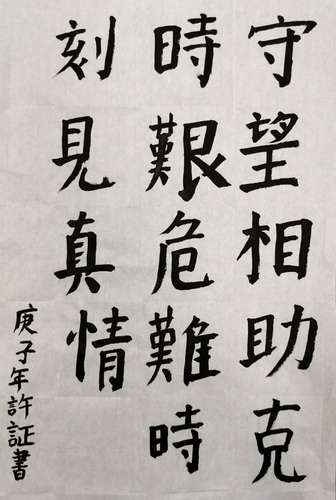 守望相助克
時艱危難時
刻見真情
庚子年許証書